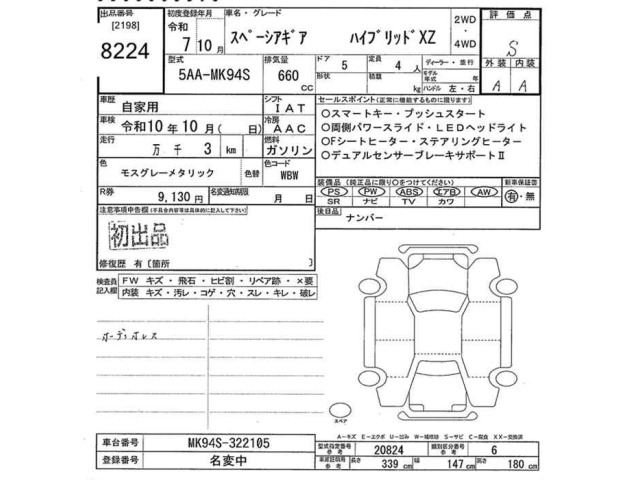 出品番号
[2198]
8224
初度登録年月
令和
7 10月
車名・グレード
スペーシアギア ハイブリッドXZ
2WD
・
4WD
評価点
S
外装 内装
A A
型式
5AA-MK94S
排気量
660
CC
ドア
5
形状
定員
4 人
積載
kg
ディーラー・並行
モデル
年式 年
ハンドル 左・右
車歴
自家用
シフト
IAT
車検
令和10年10月(日)
冷房
AAC
走行
万 千 3 km
燃料
ガソリン
色
モスグレーメタリック
色替
色コード
WBW
R券
9,130 円
名変通知期限
月 日
セールスポイント(正常に機能するものに限ります)
○スマートキー・プッシュスタート
○両側パワースライド・LEDヘッドライト
○Fシートヒーター・ステアリングヒーター
○デュアルセンサーブレーキサポートⅡ
装備品(純正品に限り○をつけてください)
PS PW ABS エアB AW
SR ナビ TV カワ
新車保証書
有・無
後日品
ナンバー
注意事項申告欄(不具合内容等は具体的に記入して下さい)
初出品
修復歴 有〔箇所 〕
検査員
記入欄
FW キズ・飛石・ヒビ割・リペア跡・×要
内装 キズ・汚レ・コゲ・穴・スレ・キレ・破レ
オーディオレス
スペア
A－キズ E－エクボ U－凹み W－補修跡 S－サビ C－腐食 XX－交換済
車台番号
MK94S-322105
登録番号
名変中
型式指定番号
参考
20824
類別区分番号
参考
6
車検証明用
参考
長さ
339 cm
幅
147 cm
高さ
180 cm